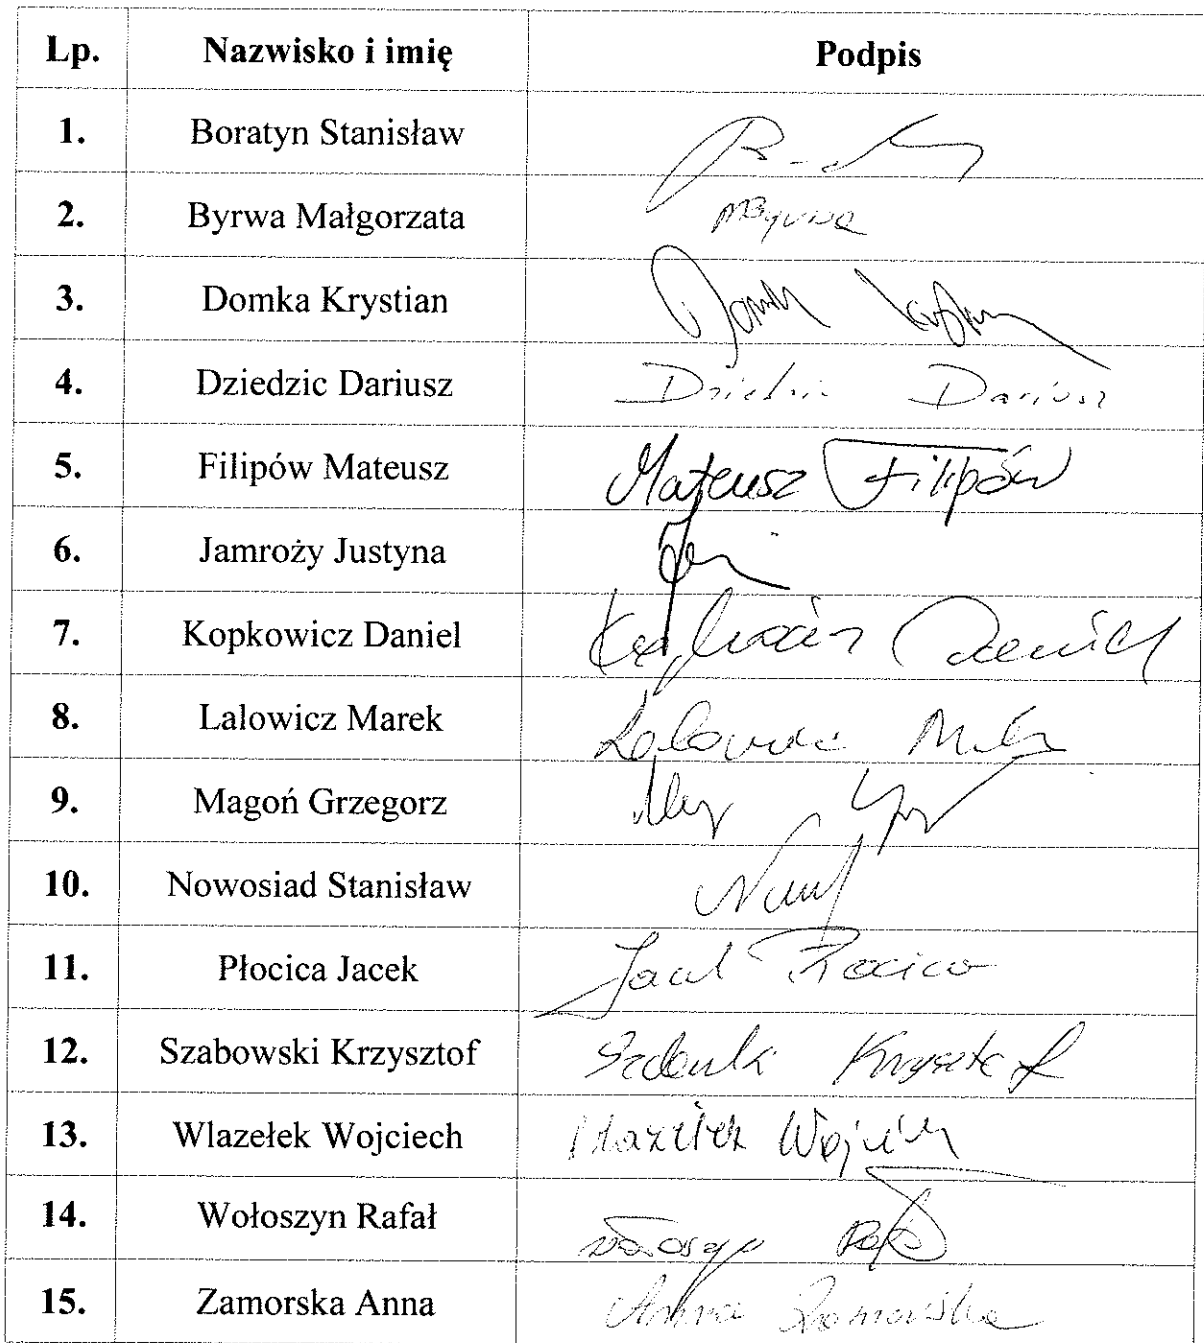 Lp. Nazwisko i imię Podpis
1. Boratyn Stanisław
2. Byrwa Małgorzata MByrwa
3. Domka Krystian
4. Dziedzic Dariusz Dziedzic Dariusz
5. Filipów Mateusz Mateusz Filipów
6. Jamroży Justyna
7. Kopkowicz Daniel Daniel
8. Lalowicz Marek
9. Magoń Grzegorz
10. Nowosiad Stanisław
11. Płocica Jacek Jacek Płocica
12. Szabowski Krzysztof Krzysztof
13. Wlazełek Wojciech Wlazełek Wojciech
14. Wołoszyn Rafał
15. Zamorska Anna Anna Zamorska